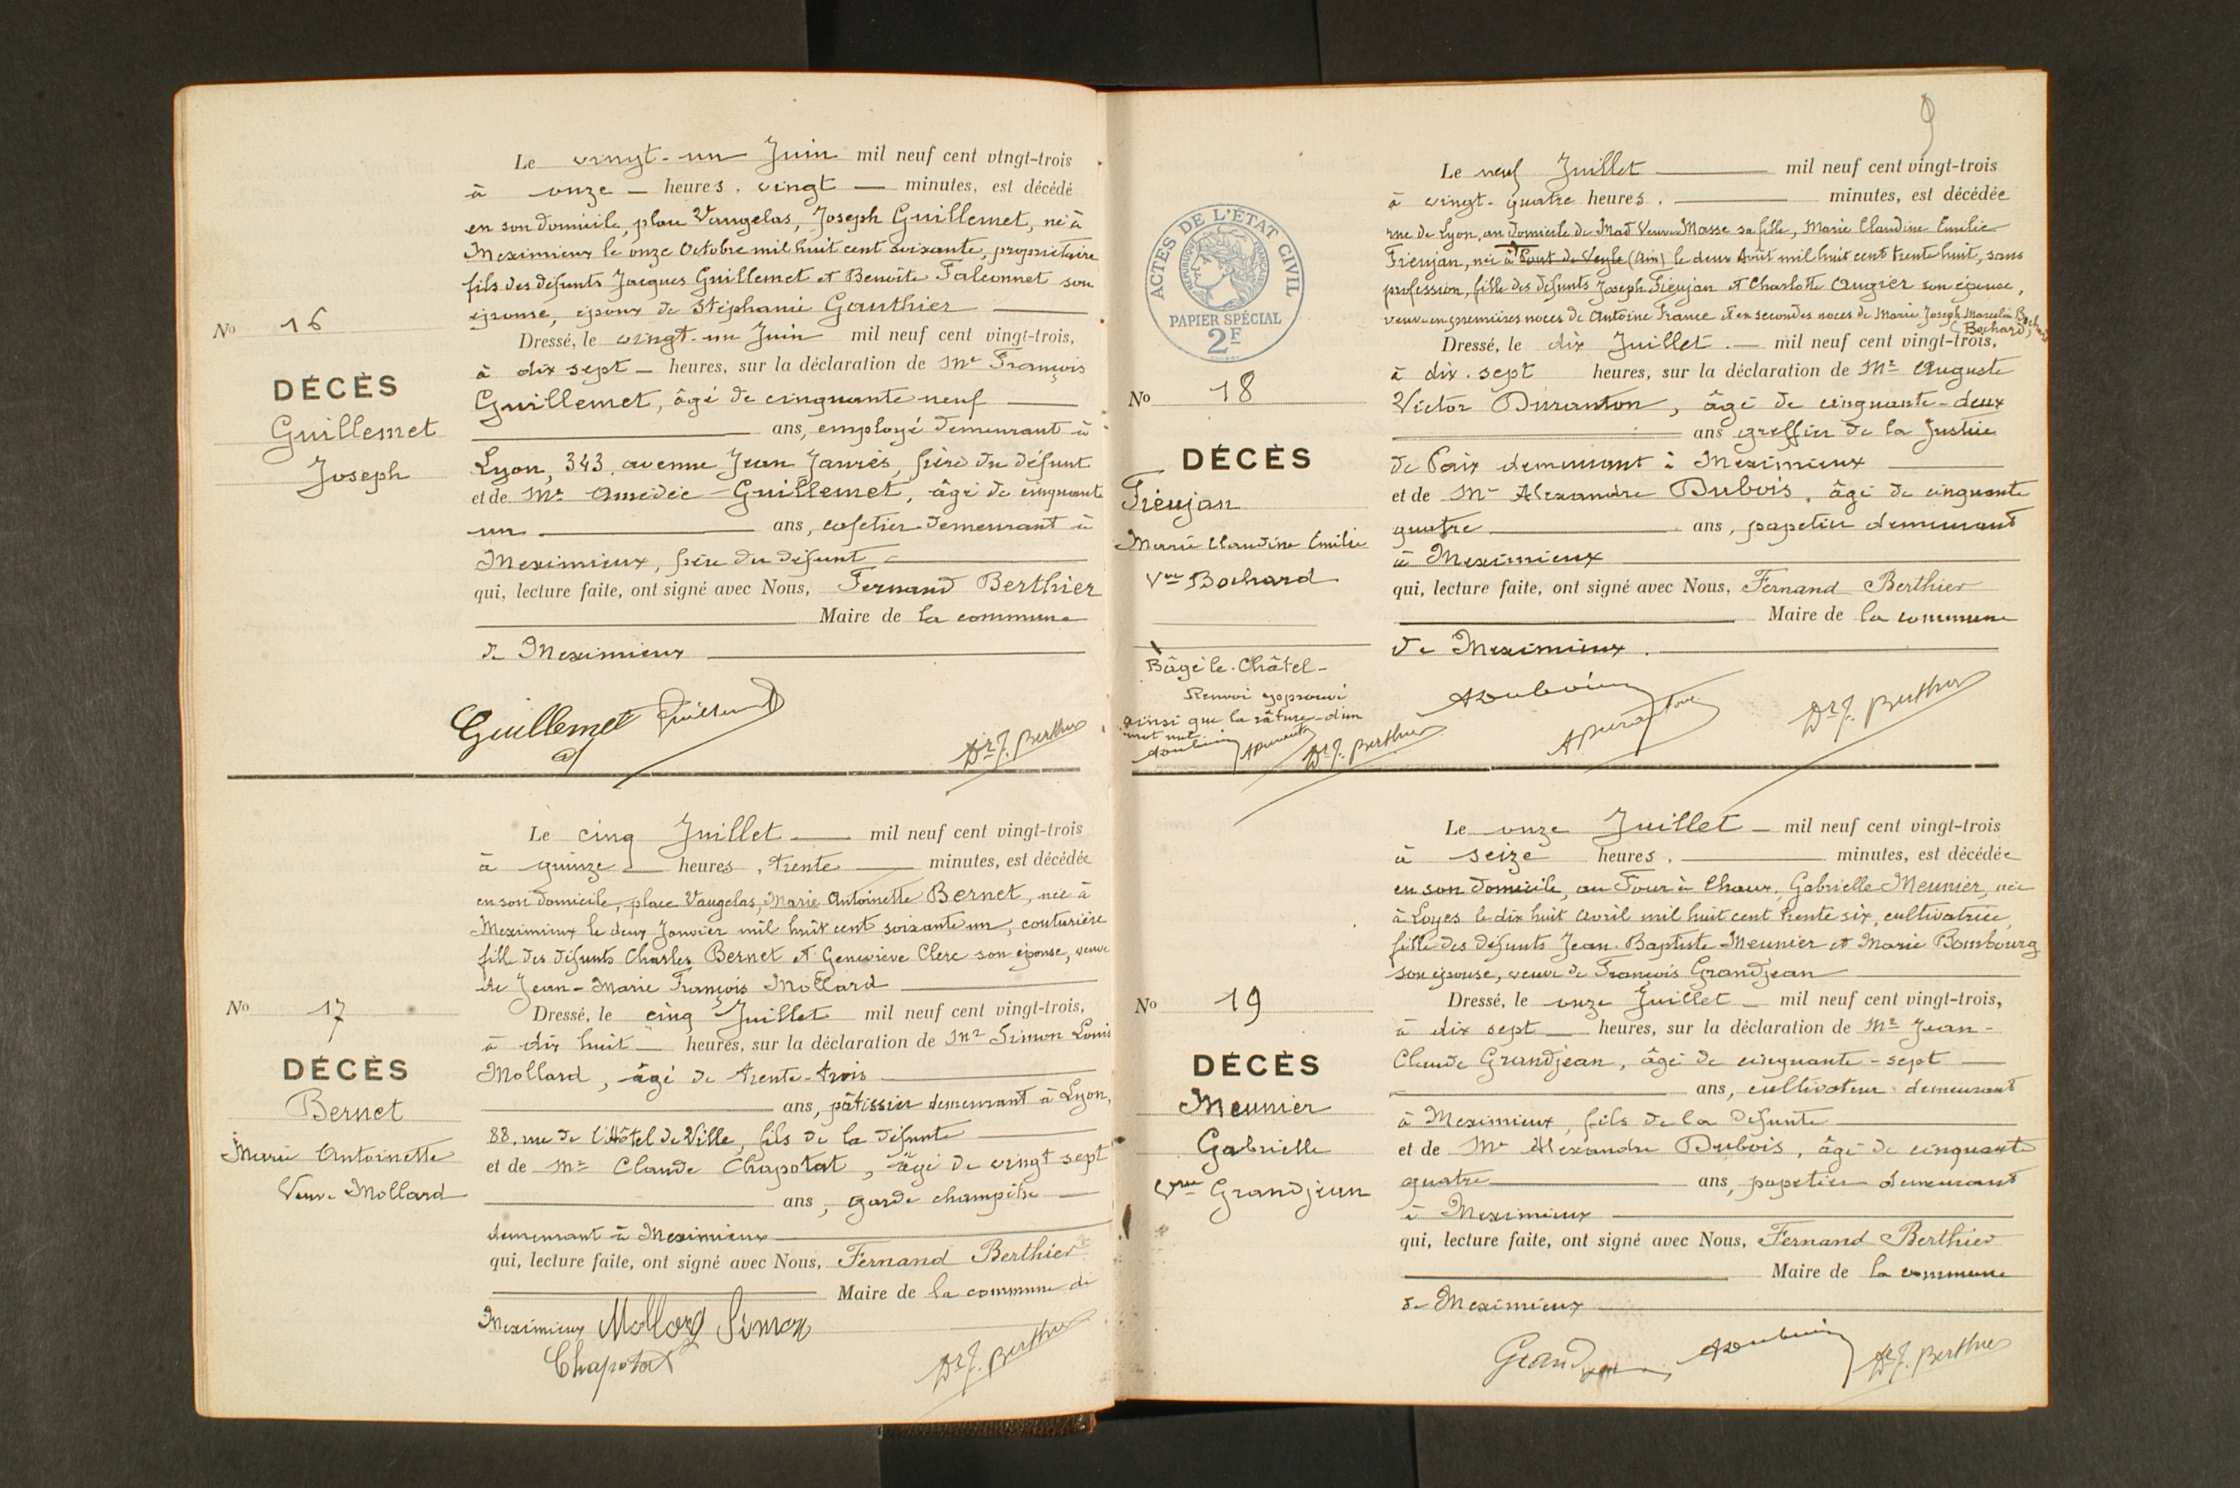 Le vingt-un Juin mil neuf cent vingt-trois
à onze heures, vingt minutes, est décédé
en son domicile, place Vaugelas, Joseph Guillemet, né à
Meximieux le onze Octobre mil huit cent soixante, propriétaire
fils des défunts Jacques Guillemet et Benoîte Falconnet son
épouse, époux de Stéphanie Gauthier
No 16
DÉCÈS
Guillemet
Joseph
Dressé, le vingt-un Juin mil neuf cent vingt-trois,
à dix sept heures, sur la déclaration de Mr François
Guillemet, âgé de cinquante neuf
ans, employé demeurant à
Lyon, 343, avenue Jean Jaurès, frère du défunt
et de Mr Amédée Guillemet, âgé de cinquante
un ans, cafetier demeurant à
Meximieux, frère du défunt
qui, lecture faite, ont signé avec Nous, Fernand Berthier
Maire de la commune
de Meximieux
Guillemet Guillemet
Dr F. Berthier
Le cinq Juillet mil neuf cent vingt-trois
à quinze heures, trente minutes, est décédée
en son domicile, place Vaugelas, Marie Antoinette Bernet, née à
Meximieux le deux Janvier mil huit cent soixante un, couturière
fille des défunts Charles Bernet et Geneviève Clerc son épouse, veuve
de Jean-Marie François Mollard
No 17
DÉCÈS
Bernet
Marie Antoinette
Veuve Mollard
Dressé, le cinq Juillet mil neuf cent vingt-trois,
à dix huit heures, sur la déclaration de Mr Simon Louis
Mollard, âgé de trente-trois
ans, pâtissier demeurant à Lyon,
88, rue de l'Hôtel de Ville, fils de la défunte
et de Mr Claude Chapotat, âgé de vingt sept
ans, garde champêtre
demeurant à Meximieux
qui, lecture faite, ont signé avec Nous, Fernand Berthier
Maire de la commune de
Meximieux Mollard Simon
Chapotat
Dr F. Berthier
9
Le neuf Juillet mil neuf cent vingt-trois
à vingt-quatre heures, minutes, est décédée
rue de Lyon, au domicile de Mad Veuve Masse sa fille, Marie Claudine Emilie
Fréujan, née à Pont de Veyle (Ain) le deux Août mil huit cent trente huit, sans
profession, fille des défunts Joseph Fréujan et Charlotte Augier son épouse,
veuve en premières noces de Antoine France et en secondes noces de Marie Joseph Marcelin Bochard
Bochard,
ACTES DE L'ÉTAT CIVIL
RÉPUBLIQUE FRANÇAISE
PAPIER SPÉCIAL
2F
No 18
DÉCÈS
Fréujan
Marie Claudine Emilie
Vve Bochard
Bâgé-le-Châtel-
Renvoi approuvé
ainsi que la rature d'un
mot nul
ADubois ADuranton Dr F. Berthier
Dressé, le dix Juillet mil neuf cent vingt-trois,
à dix-sept heures, sur la déclaration de Mr Auguste
Victor Duranton, âgé de cinquante-deux
ans greffier de la Justice
de Paix demeurant à Meximieux
et de Mr Alexandre Dubois, âgé de cinquante
quatre ans, papetier demeurant
à Meximieux
qui, lecture faite, ont signé avec Nous, Fernand Berthier
Maire de la commune
de Meximieux.
ADubois
ADuranton
Dr F. Berthier
Le onze Juillet mil neuf cent vingt-trois
à seize heures, minutes, est décédée
en son domicile, au Four à Chaux, Gabrielle Meunier, née
à Loyes le dix huit Avril mil huit cent trente six, cultivatrice,
fille des défunts Jean-Baptiste Meunier et Marie Bombourg
son épouse, veuve de François Grandjean
No 19
DÉCÈS
Meunier
Gabrielle
Vve Grandjean
Dressé, le onze Juillet mil neuf cent vingt-trois,
à dix sept heures, sur la déclaration de Mr Jean-
Claude Grandjean, âgé de cinquante-sept
ans, cultivateur demeurant
à Meximieux, fils de la défunte
et de Mr Alexandre Dubois, âgé de cinquante
quatre ans, papetier demeurant
à Meximieux
qui, lecture faite, ont signé avec Nous, Fernand Berthier
Maire de la commune
de Meximieux
Grandjean ADubois Dr F. Berthier